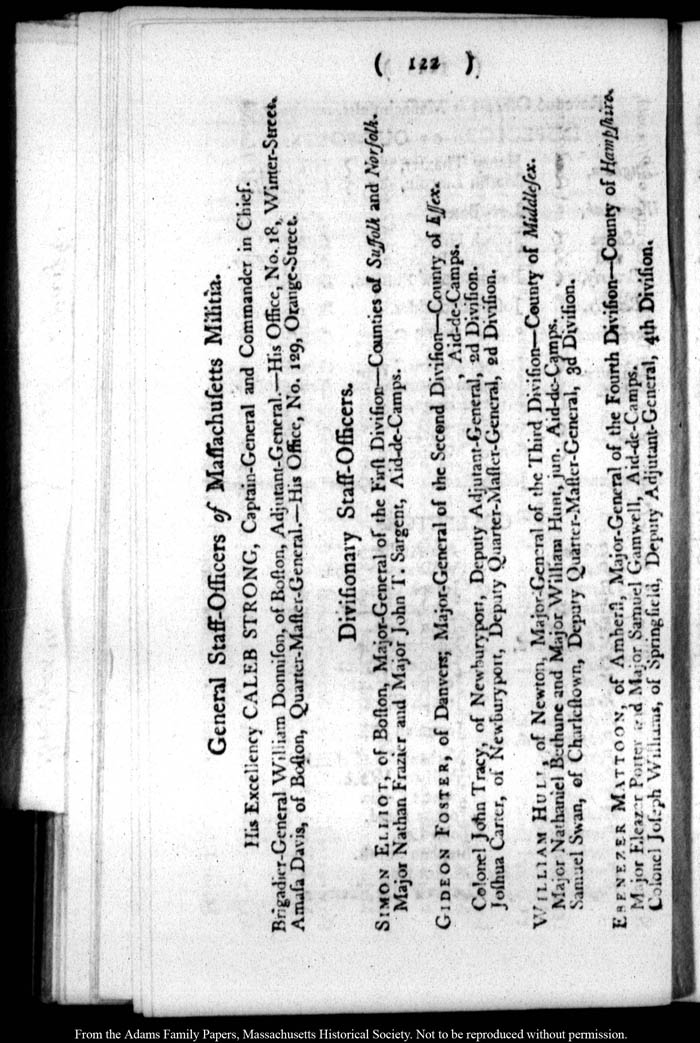 ( 122 )
General Staff-Officers of Maſſachuſetts Militia.
His Excellency CALEB STRONG, Captain-General and Commander in Chief.
Brigadier-General William Donniſon, of Boſton, Adjutant-General.—His Office, No. 18, Winter-Street.
Amaſa Davis, of Boſton, Quarter-Maſter-General.—His Office, No. 129, Orange-Street.
Diviſionary Staff-Officers.
SIMON ELLIOT, of Boſton, Major-General of the Firſt Diviſion—Counties of Suffolk and Norfolk.
Major Nathan Frazier and Major John T. Sargent, Aid-de-Camps.
GIDEON FOSTER, of Danvers; Major-General of the Second Diviſion—County of Eſſex.
Aid-de-Camps.
Colonel John Tracy, of Newburyport, Deputy Adjutant-General, 2d Diviſion.
Joſhua Carter, of Newburyport, Deputy Quarter-Maſter-General, 2d Diviſion.
WILLIAM HULL, of Newton, Major-General of the Third Diviſion—County of Middleſex.
Major Nathaniel Bethune and Major William Hunt, jun. Aid-de-Camps.
Samuel Swan, of Charleſtown, Deputy Quarter-Maſter-General, 3d Diviſion.
EBENEZER MATTOON, of Amherſt, Major-General of the Fourth Diviſion—County of Hampſhire.
Major Eleazer Porter and Major Samuel Gamwell, Aid-de-Camps.
Colonel Joſeph Williams, of Springfield, Deputy Adjutant-General, 4th Diviſion.
From the Adams Family Papers, Massachusetts Historical Society. Not to be reproduced without permission.